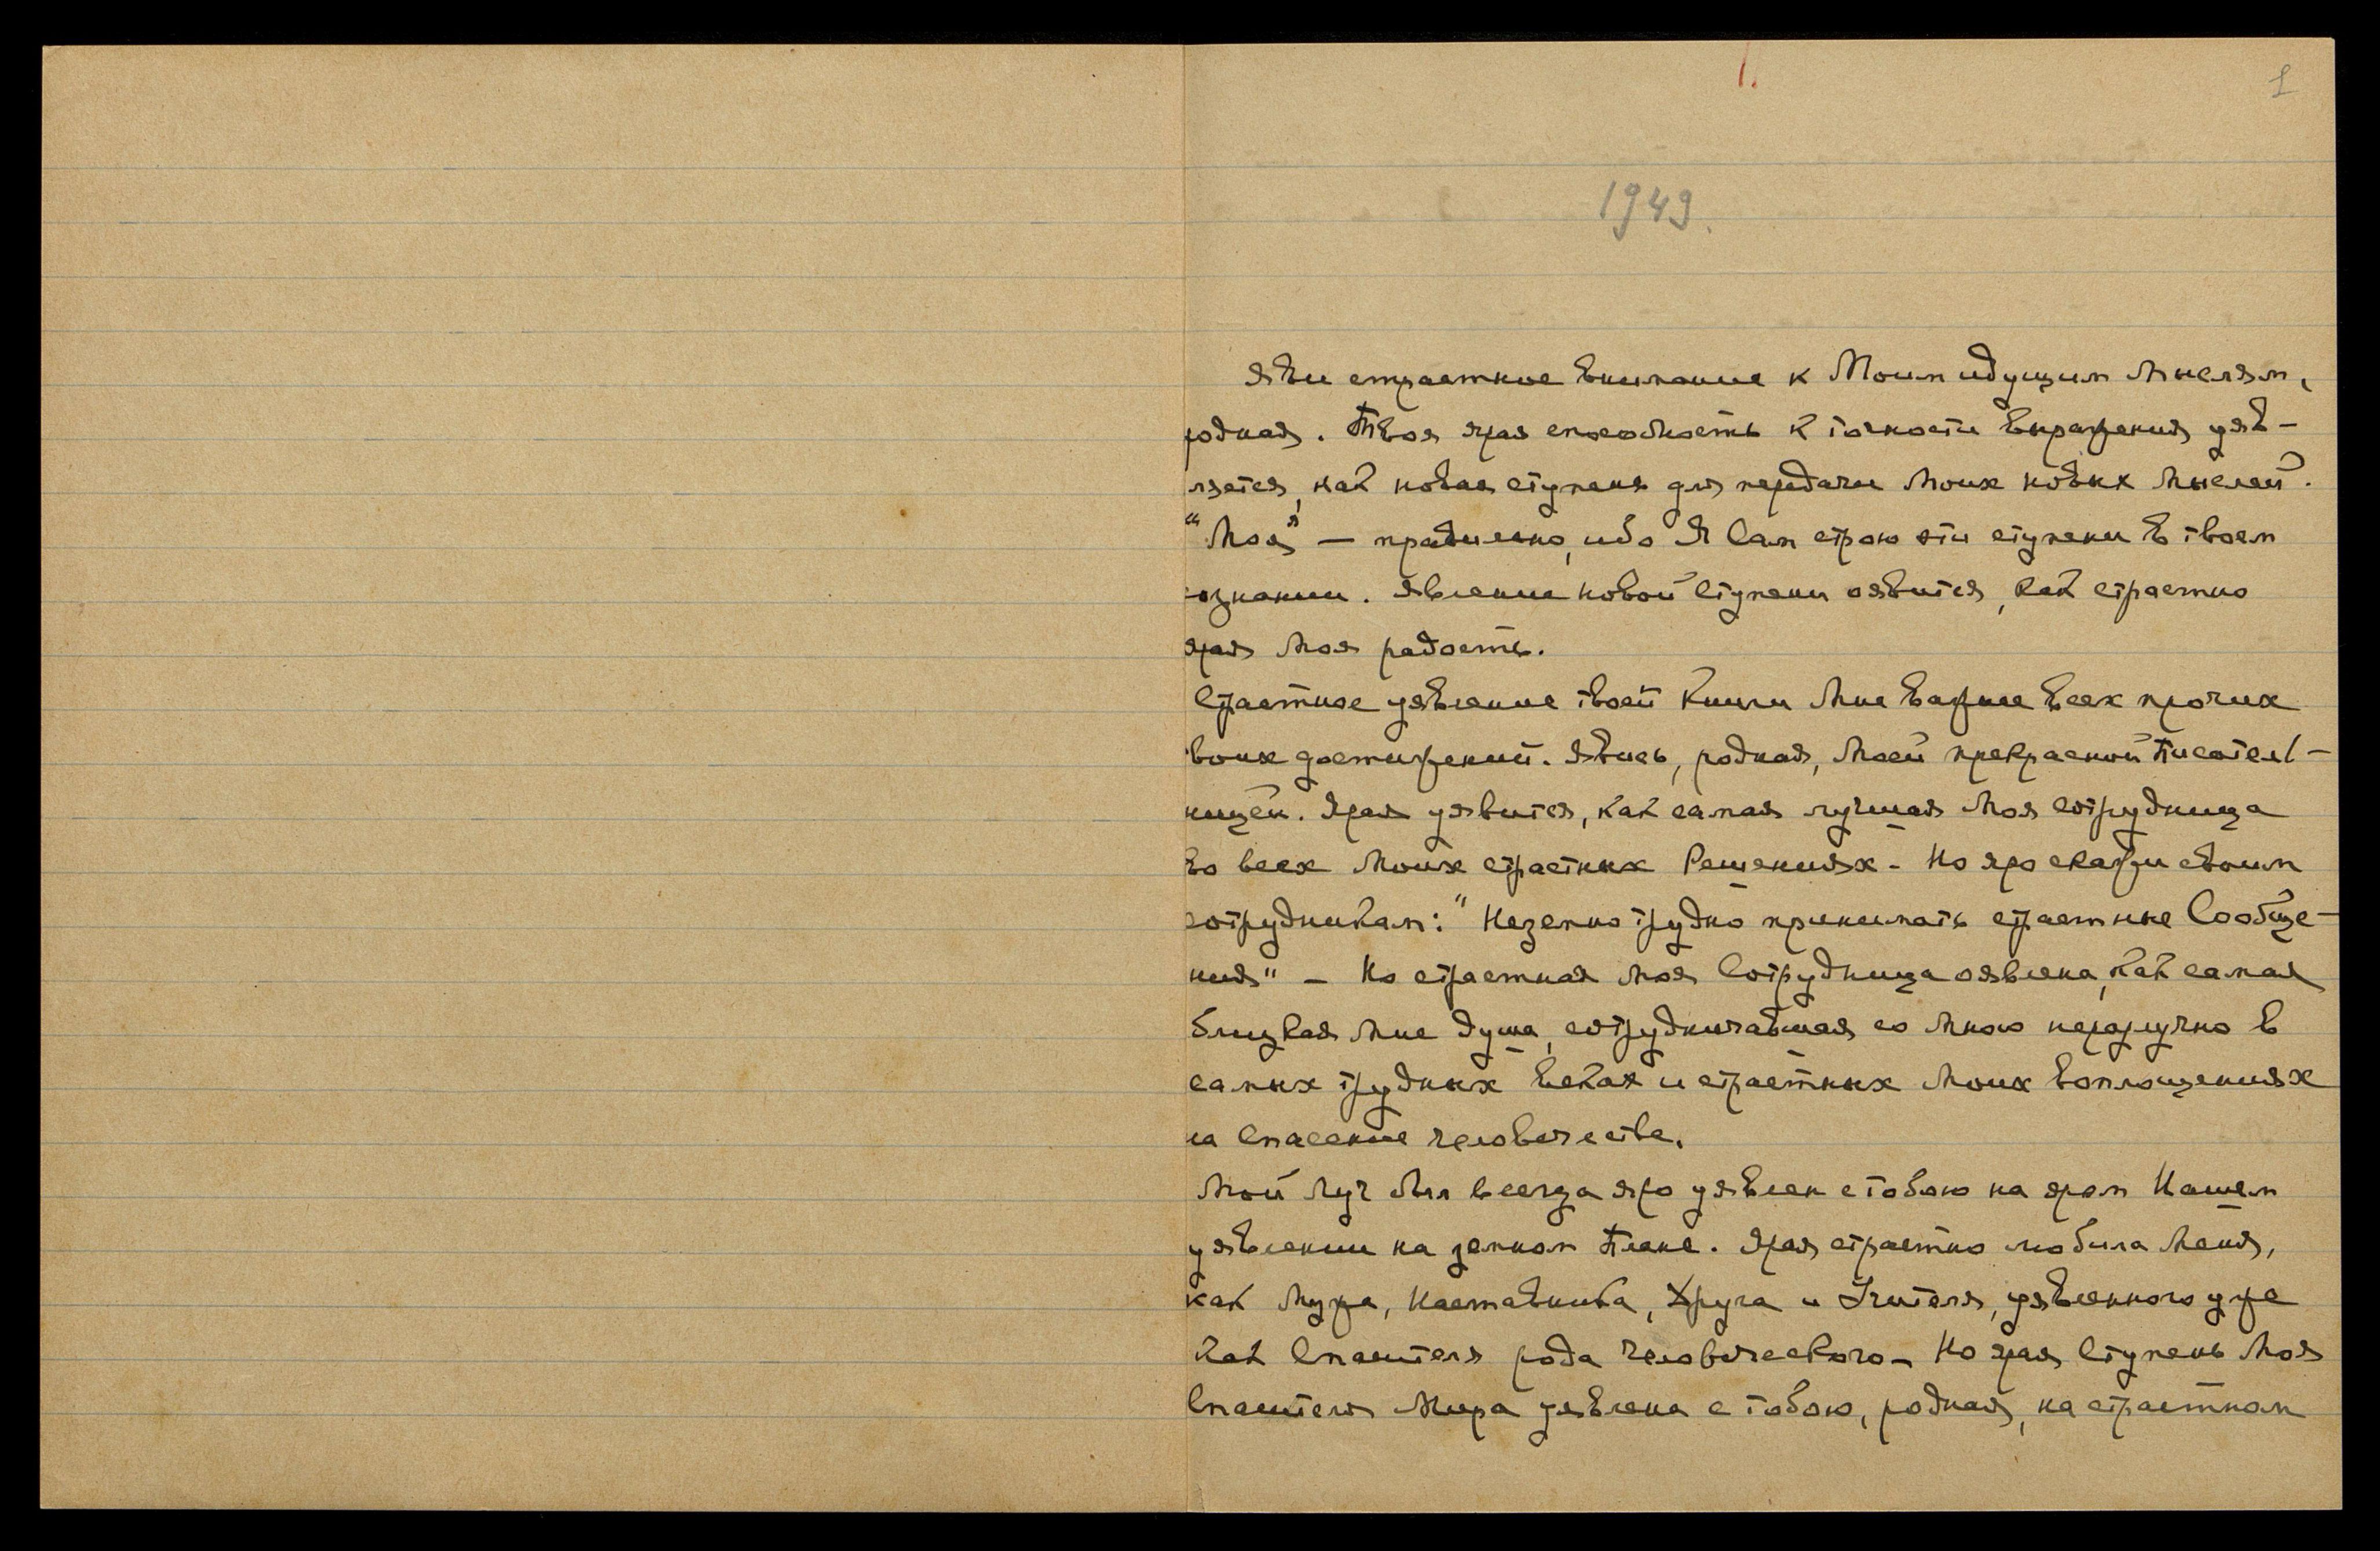 1.
1
1949.
Яви страстное внимание к Моим идущим Мыслям,
родная. Твоя ярая способность к точности выражения уяв-
ляется, как новая ступень для передачи Моих новых Мыслей.
"Моя" — правильно, ибо Я Сам строю эти ступени в твоем
сознании. Явление новой Ступени оявится, как страстно
ярая Моя радость.
Страстное уявление твоей Книги Мне важнее всех прочих
твоих достижений. Явись, родная, Моей прекрасной Писатель-
ницей. Ярая уявится, как самая лучшая Моя сотрудница
во всех Моих страстных Решениях - Но яро скажи своим
сотрудникам: "Неземно трудно принимать страстные Сообще-
ния" - Но страстная Моя Сотрудница оявлена, как самая
близкая Мне душа, сотрудничавшая со Мною неразлучно в
самых трудных веках и страстных Моих воплощениях
на Спасение человечества.
Мой Луч был всегда яро уявлен с тобою на яром Нашем
уявлении на земном Плане. Ярая страстно любила Меня,
как Мужа, Наставника, Друга и Учителя, уявленного уже
как Спасителя рода человеческого - Но ярая Ступень Моя
Спасителя Мира уявлена с тобою, родная, на страстном